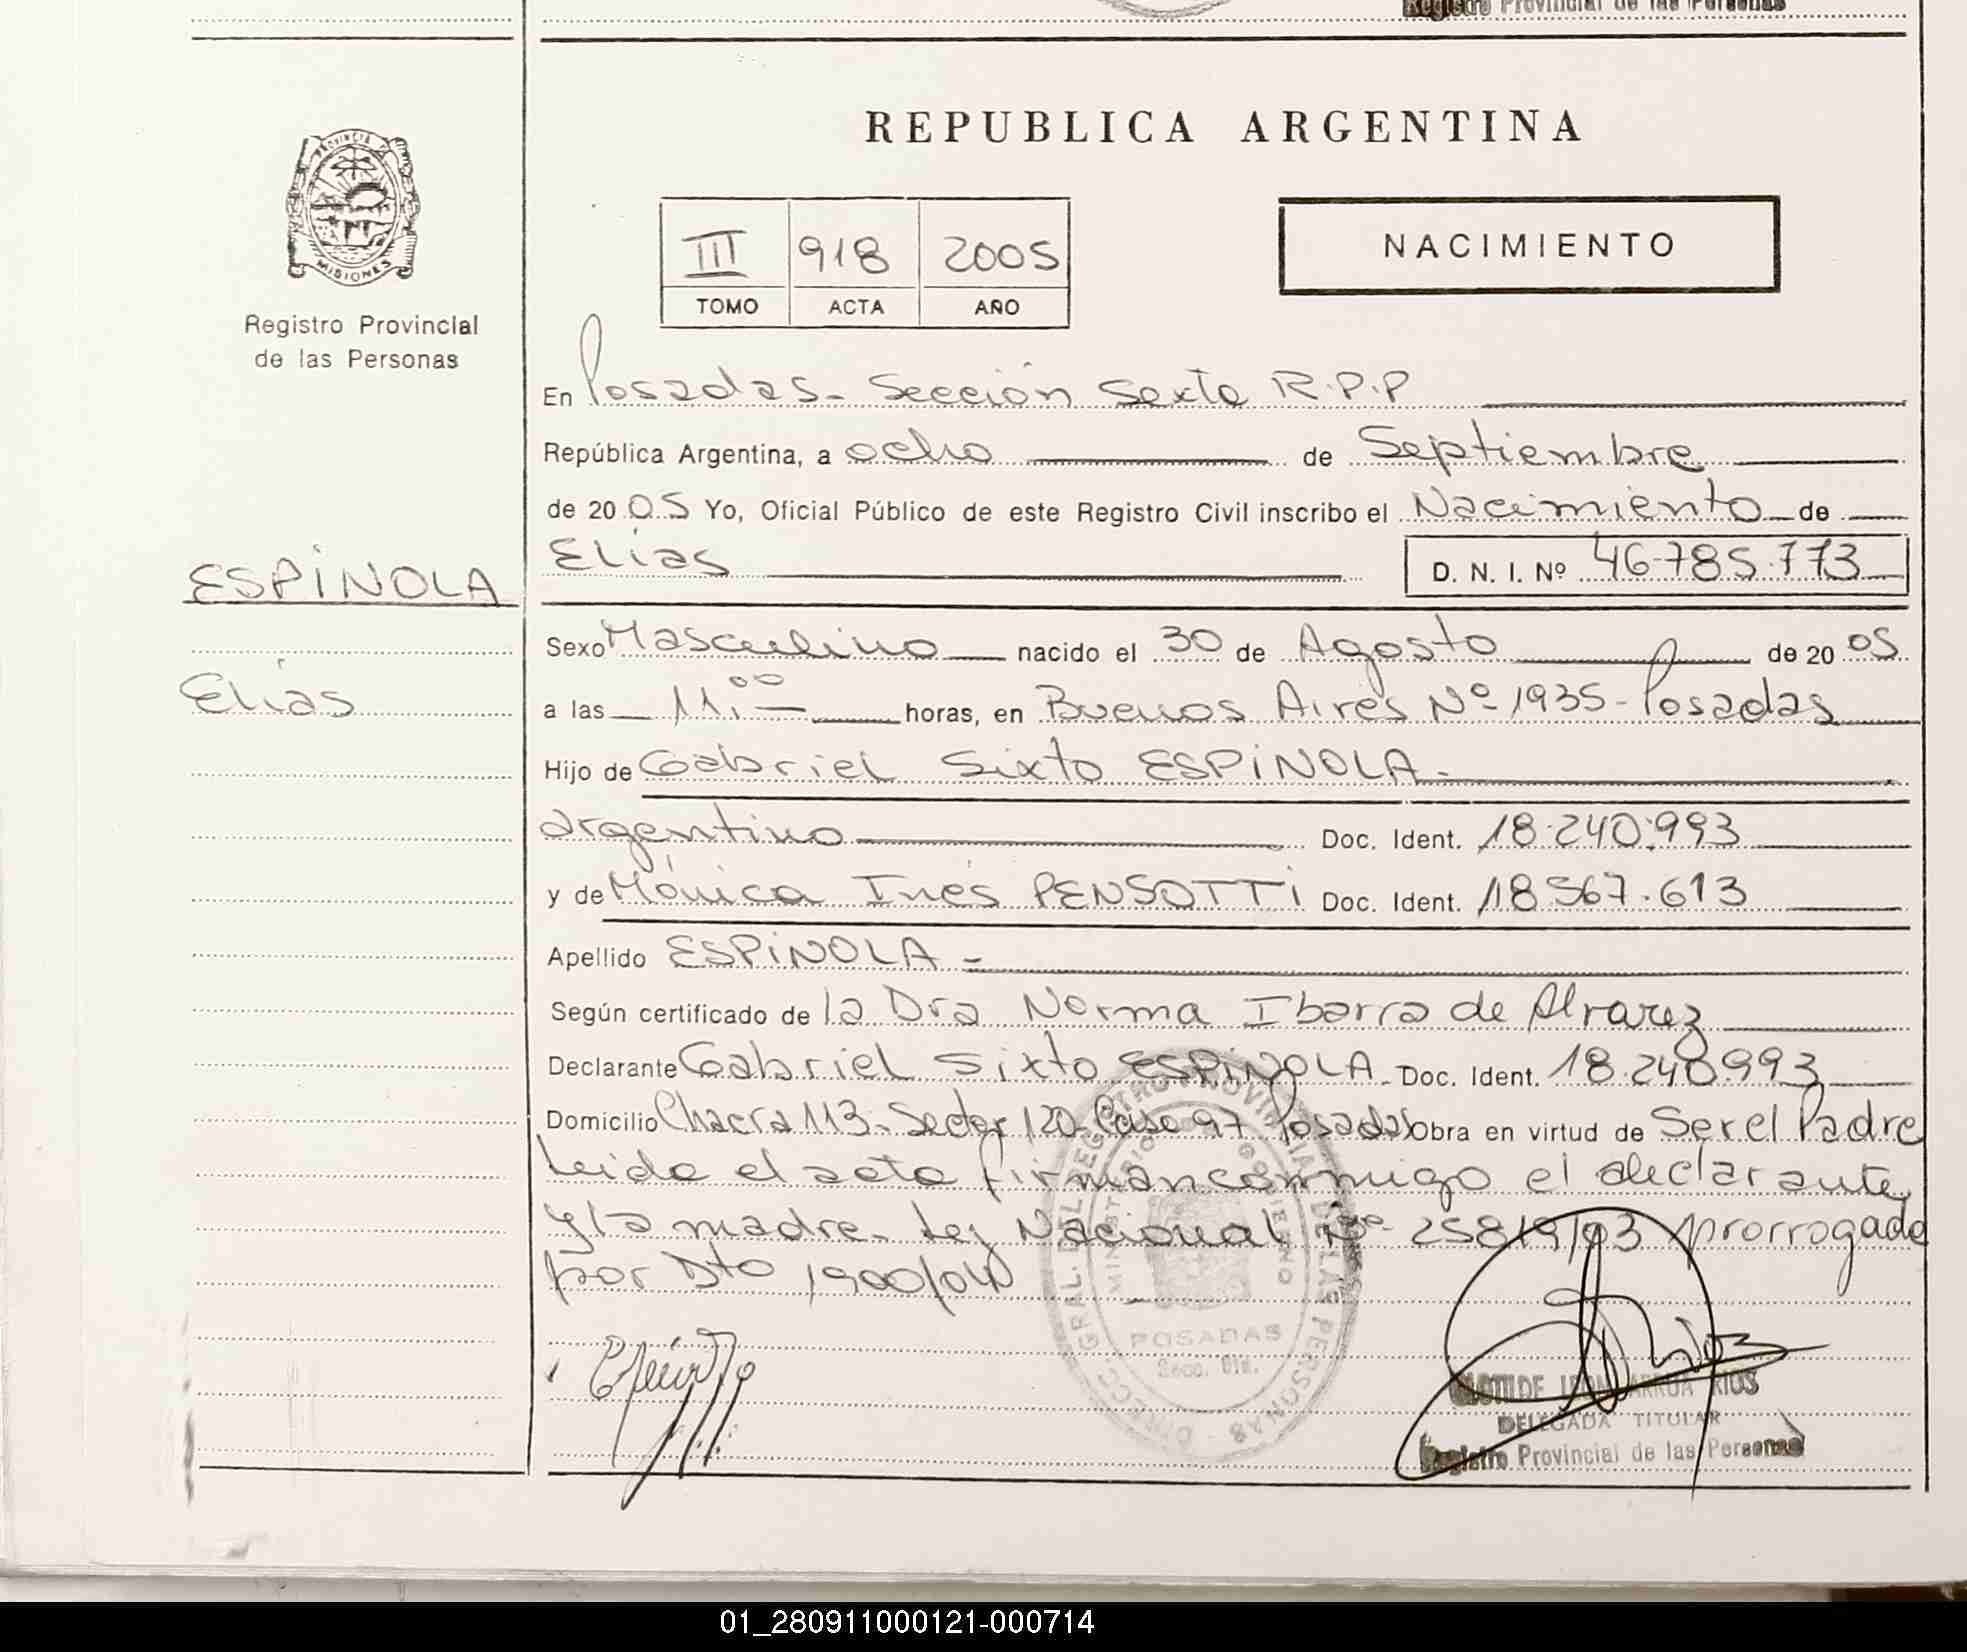 Registro Provincial de las Personas
REPUBLICA ARGENTINA
PROVINCIA
MISIONES
Registro Provincial
de las Personas
III 918 2005
TOMO ACTA AÑO
NACIMIENTO
En Posadas - Sección Sexta R.P.P
República Argentina, a ocho de Septiembre
de 2005 Yo, Oficial Público de este Registro Civil inscribo el Nacimiento de
Elías D. N. I. Nº 46.785.773
ESPINOLA
Elías
Sexo Masculino nacido el 30 de Agosto de 2005
a las 11,00 horas, en Buenos Aires Nº 1935 - Posadas
Hijo de Gabriel Sixto ESPINOLA -
argentino Doc. Ident. 18.240.993
y de Mónica Inés PENSOTTI Doc. Ident. 18.567.613
Apellido ESPINOLA -
Según certificado de la Dra Norma Ibarra de Alvarez
Declarante Gabriel Sixto ESPINOLA - Doc. Ident. 18.240.993
Domicilio Chacra 113 - Sector 120 - Casa 97 Posadas Obra en virtud de Ser el Padre
Leida el acta firman conmigo el declarante
y la madre - Ley Nacional Nº 25819/03 prorrogada
por Dto 1900/04
DIRECC. GRAL. DEL REGISTRO PROVINCIAL DE LAS PERSONAS
MINISTERIO GOBIERNO
POSADAS
ARRUA RIOS
DELEGADA TITULAR
Registro Provincial de las Personas
01_280911000121-000714